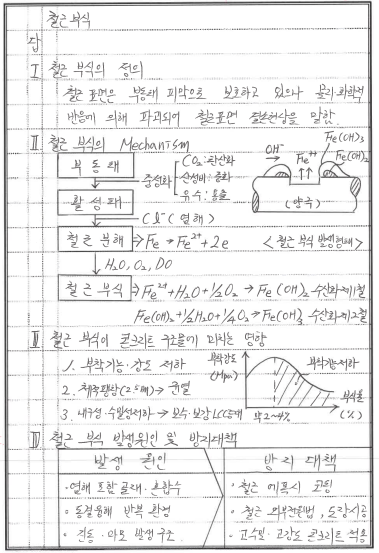 철근부식
답
Ⅰ 철근 부식의 정의
철근 표면은 부동태 피막으로 보호하고 있으나 물리·화학적
반응에 의해 파괴되어 철근표면 현상을 말함.
Ⅱ 철근 부식의 Mechanism
부동태
중성화
CO₂: 탄산화
산성비: 중화
유수: 용출
활성태
Cl⁻(염해)
철근 분해 ⇒ Fe → Fe²⁺+2e
H₂O, O₂, DO
철근 부식 ⇒ Fe²⁺+H₂O+½O₂ → Fe(OH)₂ 수산화제1철
Fe(OH)₂+½H₂O+¼O₂ → Fe(OH)₃ 수산화제2철
OH⁻
Fe²⁺
Fe(OH)₃
Fe(OH)₂
(양극)
<철근 부식 발생형태>
Ⅲ 철근 부식이 콘크리트 구조물에 미치는 영향
1. 부착기능·강도 저하
2. 체적팽창(2.5배) → 균열
3. 내구성·수밀성저하 → 보수·보강 LCC증대
부착강도
(Mpa)
부착강도저하
약2~4%
부식률
(%)
Ⅳ 철근 부식 발생원인 및 방지대책
발생 원인
방지 대책
·염해 포함 골재·혼합수
·동결융해 반복 환경
·진동·마모 발생 구조
·철근 에폭시 코팅
·철근 외부전원법, 도장시공
·고수밀·고강도 콘크리트 적용